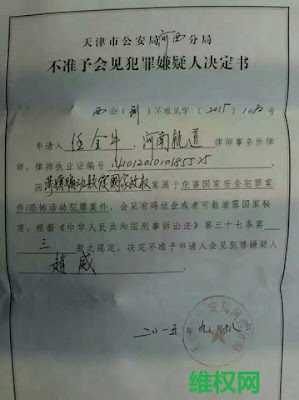 天津市公安局河西分局
不准予会见犯罪嫌疑人决定书
西公(刑)不准见字〔2015〕 号
申请人 任全牛,河南轨道 律师事务所律
师,律师执业证编号
因 煽动颠覆国家政权 案属于危害国家安全犯罪案
件/恐怖活动犯罪案件,会见有碍侦查或者可能泄露国家秘
密,根据《中华人民共和国刑事诉讼法》第三十七条第
三 款之规定,决定不准予申请人会见犯罪嫌疑人
赵威
二〇一五年九月
维权网